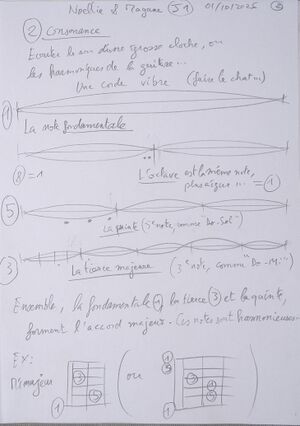 Noellie & Magane S1 01/10/2025 3
2 Consonance
Ecouter le son d'une grosse cloche, ou
les harmoniques de la guitare...
Une corde vibre (faire le chat...)
1
La note fondamentale
8 = 1
L'octave est la même note,
plus aiguë... = 1
5
La quinte (5e note, comme "Do-Sol"
3
La tierce majeure (3e note, comme "Do-Mi")
Ensemble, la fondamentale 1, la tierce 3 et la quinte,
forment l'accord majeur. Ces notes sont harmonieuses.
Ex:
Mi majeur ( ou
3 5 1
1 5 3 5 1